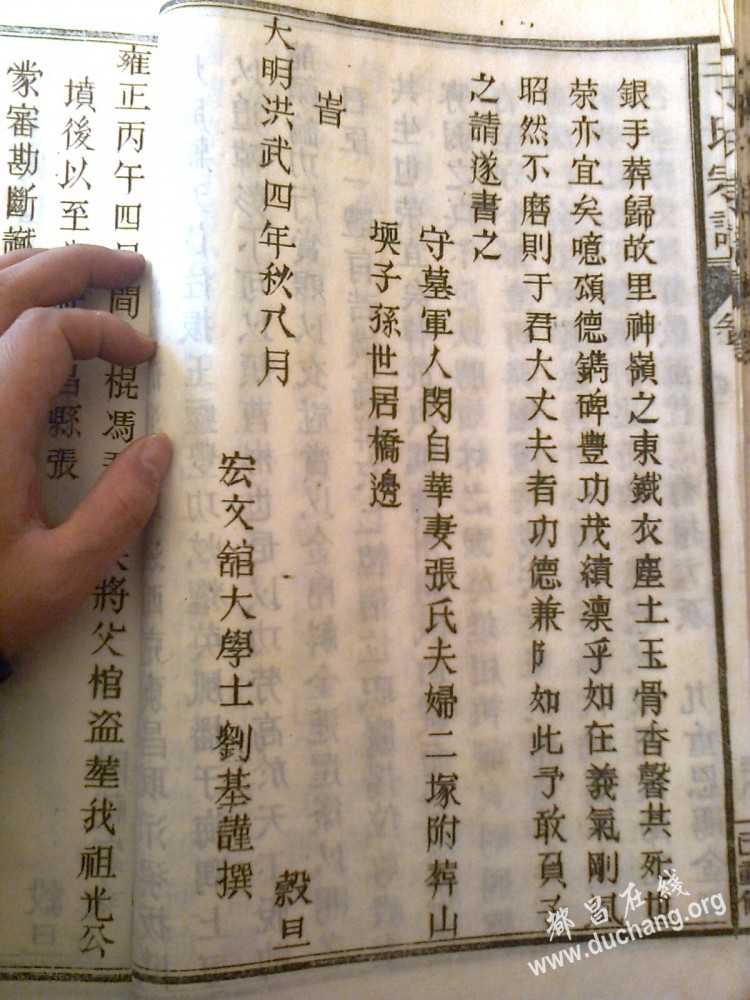 銀手葬歸故里神嶺之東鐵衣塵土玉骨香馨其死也
荣亦宜矣噫頌德鐫碑豐功茂績凛乎如在義氣剛風
昭然不磨則于君大丈夫者功德兼阝如此予敢負子
之請遂書之
守墓軍人閔自華妻張氏夫婦二塚附葬山
堧子孫世居橋邊
旹
大明洪武四年秋八月
穀旦
宏文舘大學士劉基謹撰
雍正丙午四月間 棍馮
将父棺盗塟我祖光公
墳後以至
昌縣張
蒙審勘斷讞
都昌在线
www.duchang.org